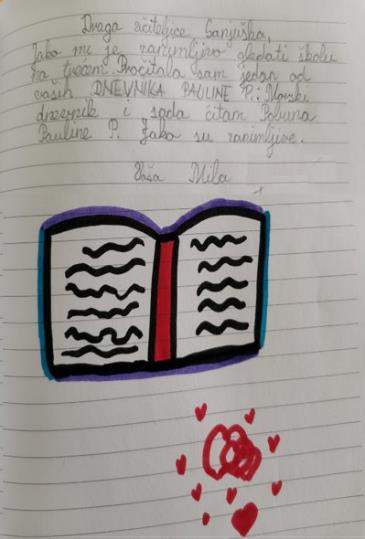 Draga učiteljice Sanjuška,
Jako mi je zanimljivo gledati školu
na trećem. Pročitala sam jedan od
vasih DNEVNIKA PAULINE P.: Morski
dnevnik i sada čitam Pobuna
Pauline P. Jako su zanimljive.
Vaša Mila